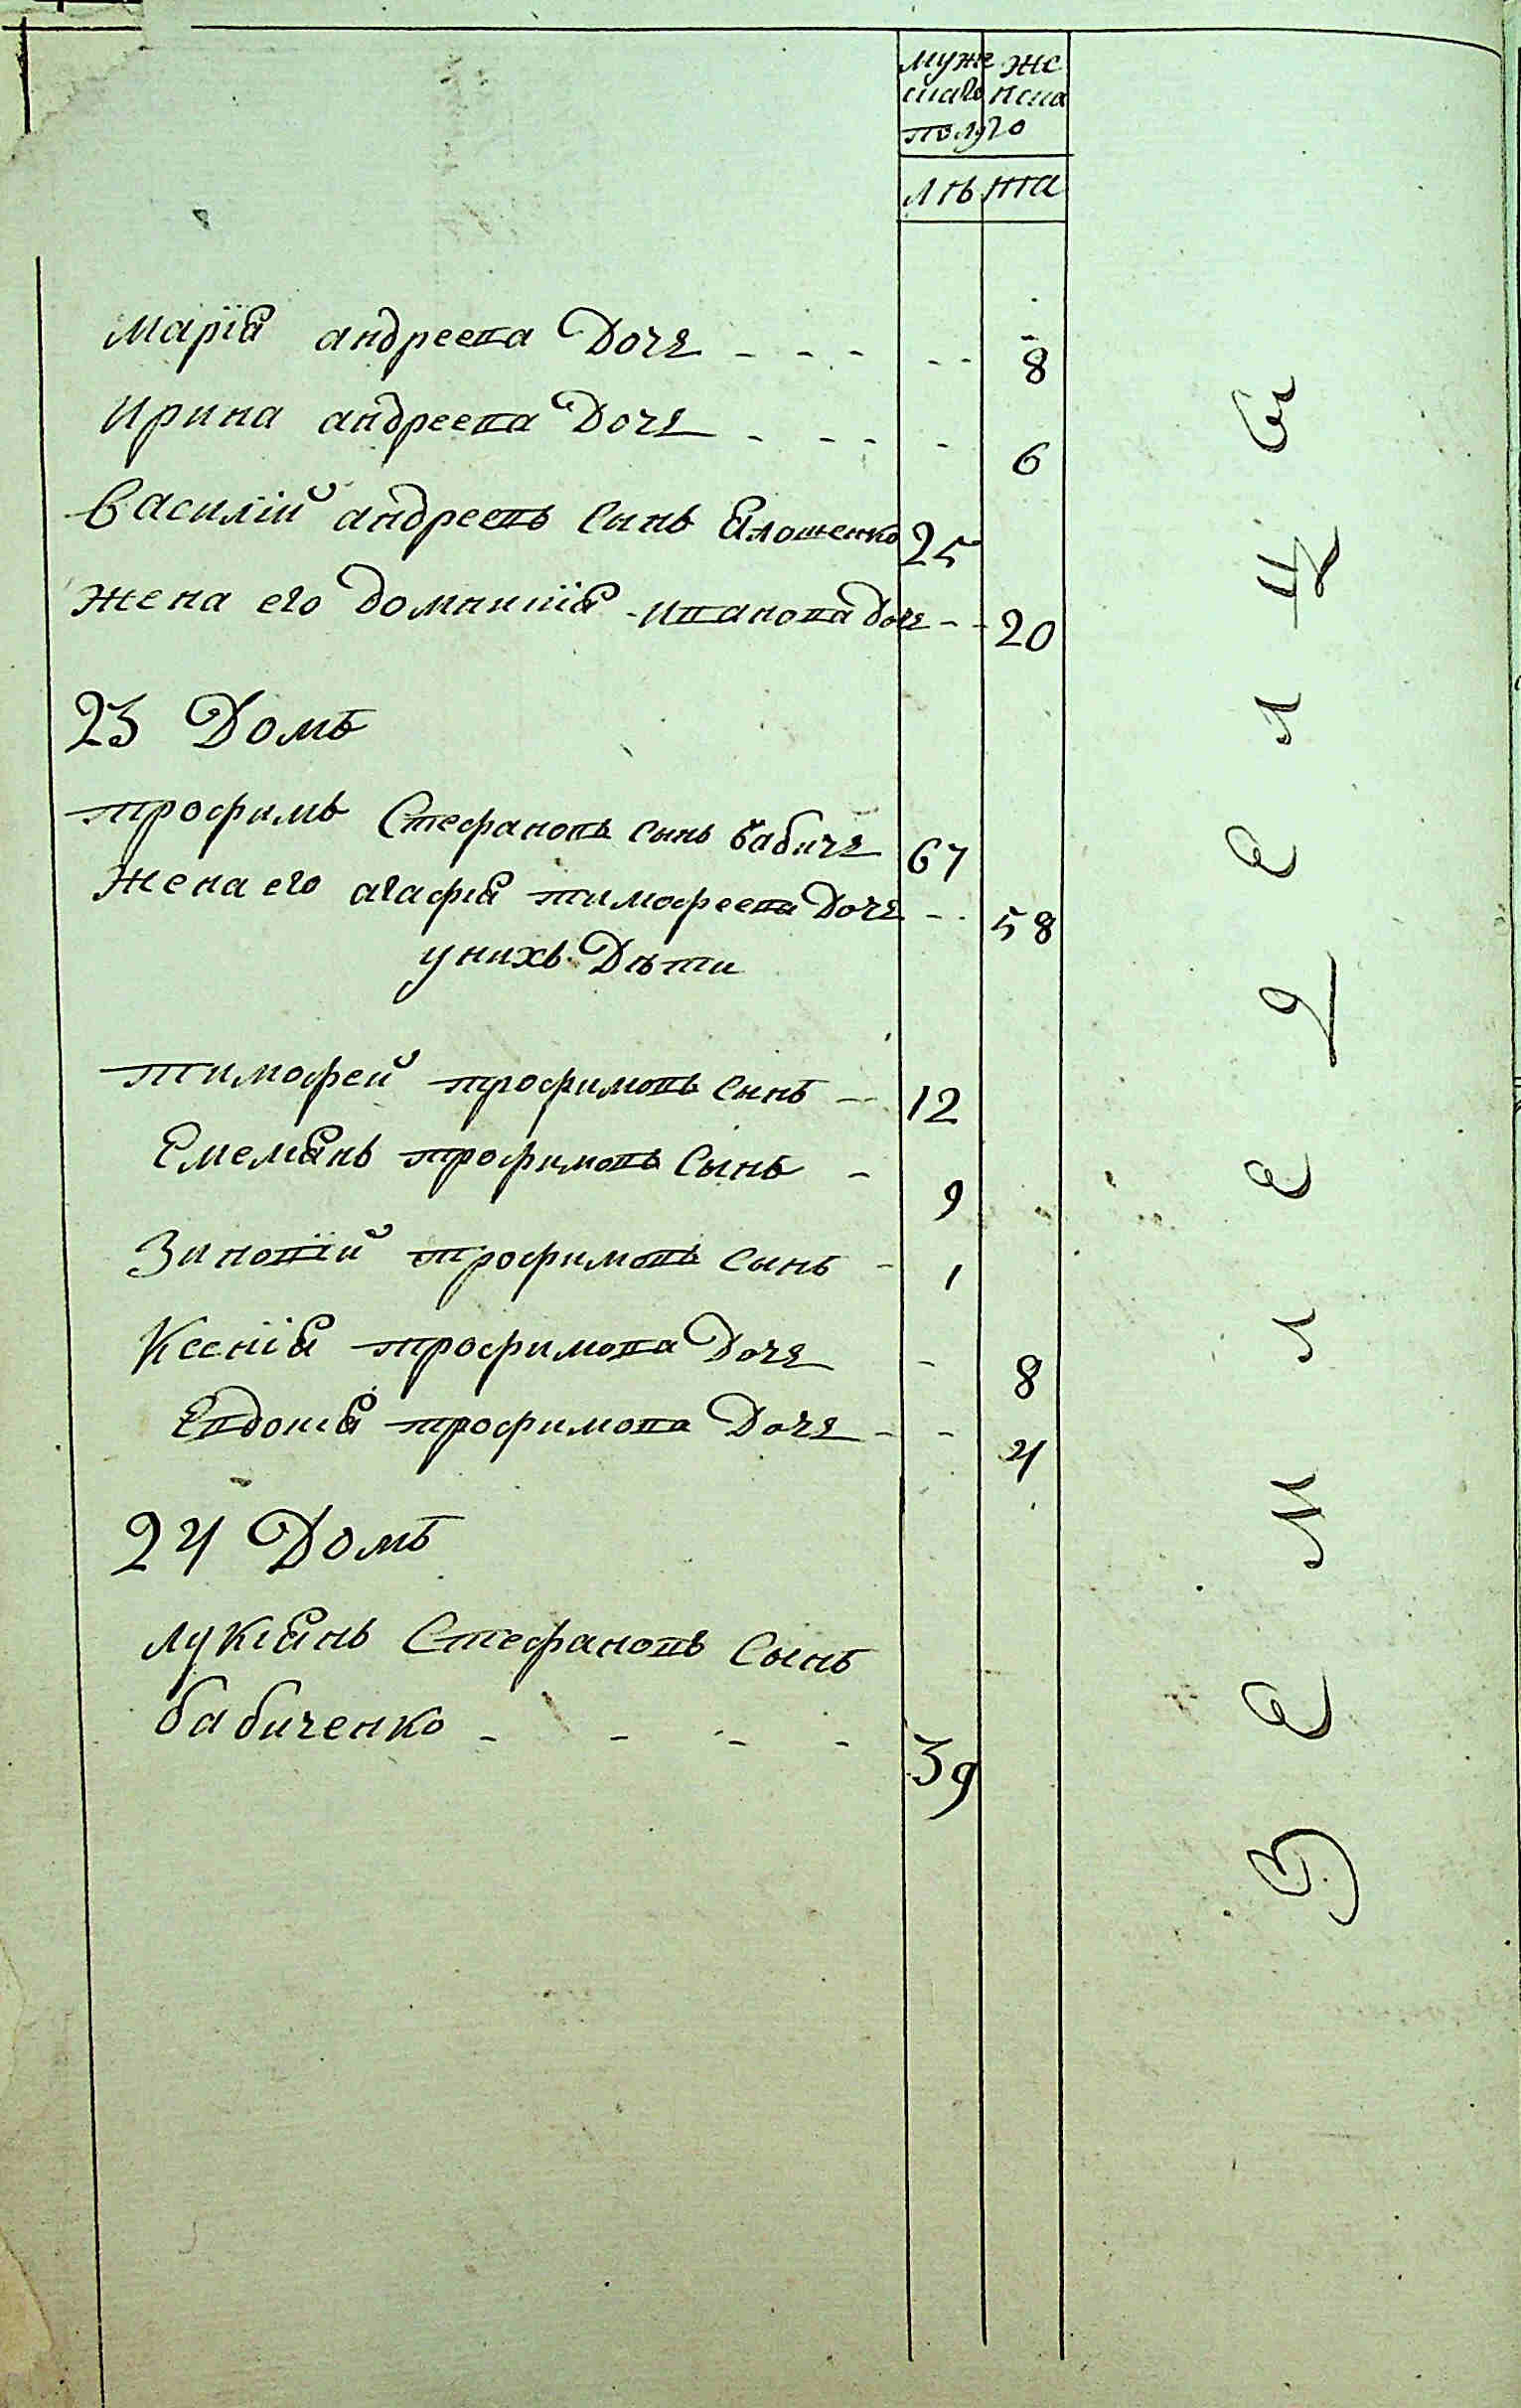 муже
скаго
же
нска
полу го
лѣ та
марія андреева Дочь 8
ирина андреева Дочь 6
василій андреевъ сынъ Ялошенко 25
жена его домникія ивановa дочь 20
23 Домъ
трофимъ Стефановъ сынъ бабичь 67
жена его агафія тимофеева Дочь 58
у нихъ Дѣти
тимофей трофимовъ сынъ 12
Емелянъ трофимовъ Сынъ 9
Зиновій трофимовъ сынъ 1
Ксенія трофимова Дочь 8
Евдокія трофимова Дочь 4
24 Домъ
лукіянъ Стефановъ Сынъ
бабиченко 39